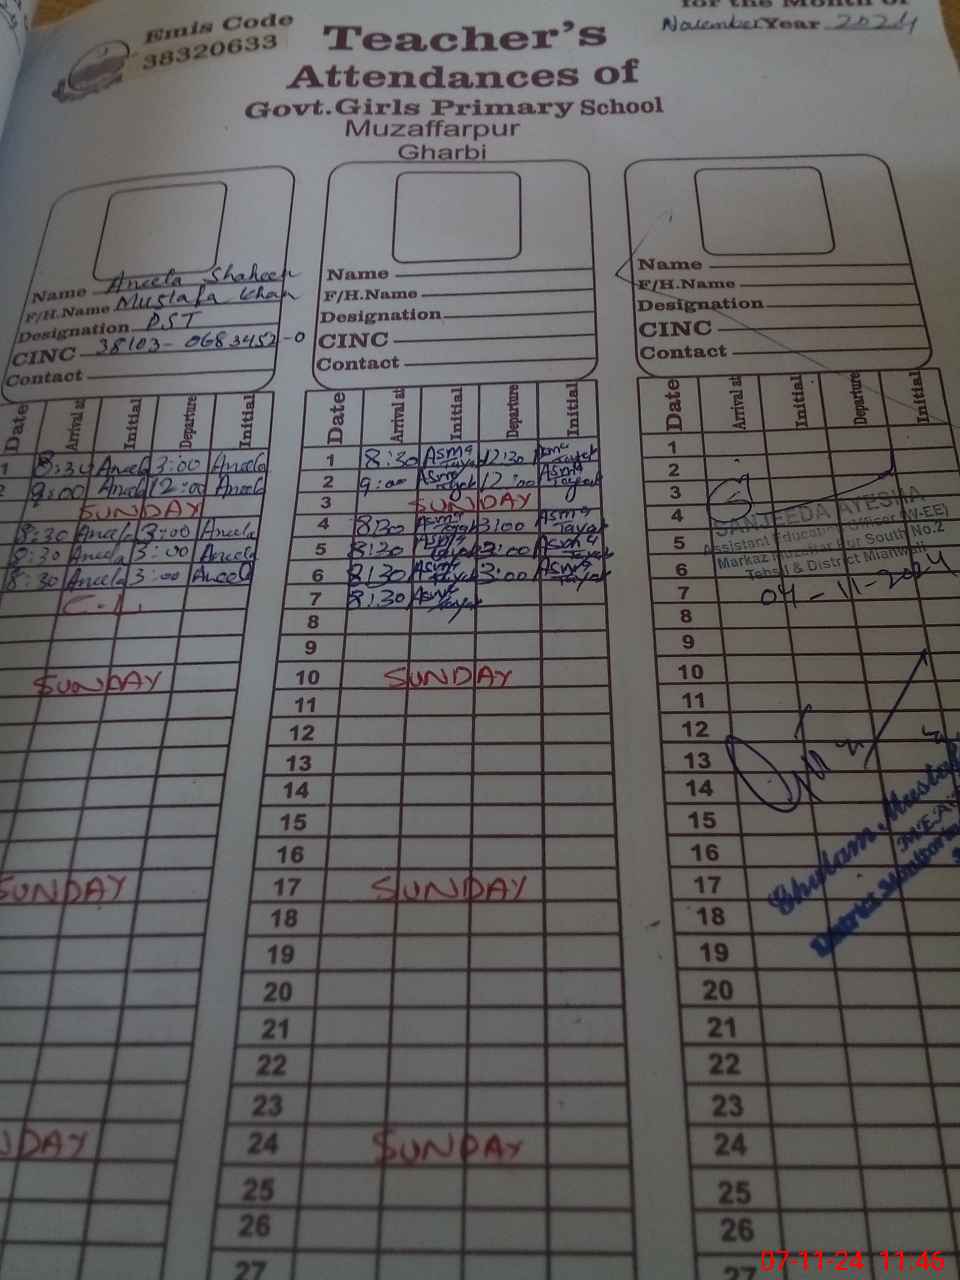 Emis Code
38320633
for the Month of
November Year 2024
Teacher's
Attendances of
Govt.Girls Primary School
Muzaffarpur
Gharbi
Name Aneela Shaheen
F/H.Name Mustafa Khan
Designation PST
CINC 38103-0683452-0
Contact
Date Arrival at Initial Departure Initial
1 8:30 Aneela 3:00 Aneela
2 9:00 Aneela 12:00 Aneela
SUNDAY
8:30 Aneela 3:00 Aneela
8:30 Aneela 3:00 Aneela
8:30 Aneela 3:00 Aneela
C.L.
SUNDAY
SUNDAY
SUNDAY
Name
F/H.Name
Designation
CINC
Contact
Date Arrival at Initial Departure Initial
1 8:30 Asma Tayab 12:30 Asma Tayab
2 9:00 Asma Tayab 12:00 Asma Tayab
3 SUNDAY
4 8:30 Asma Tayab 3:00 Asma Tayab
5 8:30 Asma Tayab 3:00 Asma Tayab
6 8:30 Asma Tayab 3:00 Asma Tayab
7 8:30 Asma Tayab
8
9
10 SUNDAY
11
12
13
14
15
16
17 SUNDAY
18
19
20
21
22
23
24 SUNDAY
25
26
27
Name
F/H.Name
Designation
CINC
Contact
Date Arrival at Initial Departure Initial
1
2
3
4
5
6
7
8
9
10
11
12
13
14
15
16
17
18
19
20
21
22
23
24
25
26
27
SANJEEDA AYESHA
Assistant Education Officer (W-EE)
Markaz Muzaffar Pur South No.2
Tehsil & District Mianwali
04-11-2024
Ghulam
M.E.A
District
07-11-24 11:46